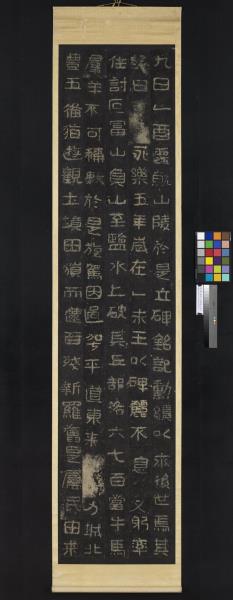 九日乙酉遷就山陵於是立碑銘記勳績以永後世焉其
辭曰永樂五年歲在乙未王以碑麗不息又躬率
住討叵富山負山至鹽水上破其丘部洛六七百當牛馬
羣羊不可稱數於是旋駕因過平道東來力城北
豊五備猶遊觀土境田獵而還百殘新羅舊是屬民由來